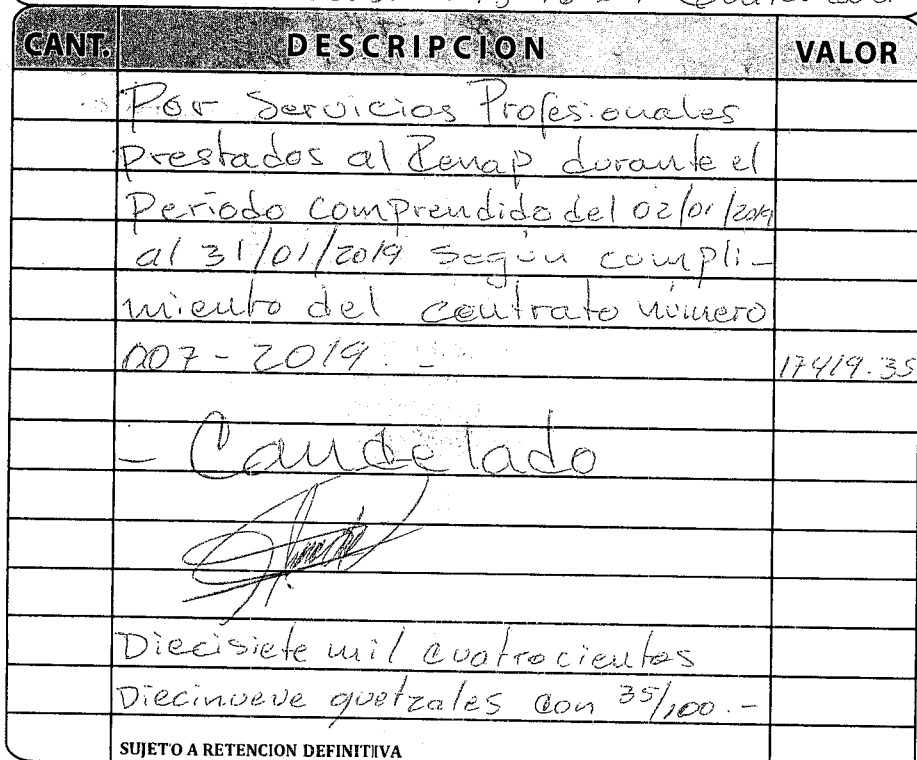 CANT. DESCRIPCION VALOR
Por Servicios Profesionales
prestados al Renap durante el
Periodo comprendido del 02/01/2019
al 31/01/2019 según cumpli-
miento del contrato número
007-2019.- 17419.35
- Cancelado
Diecisiete mil cuatrocientos
Diecinueve quetzales con 35/100.-
SUJETO A RETENCION DEFINITIVA